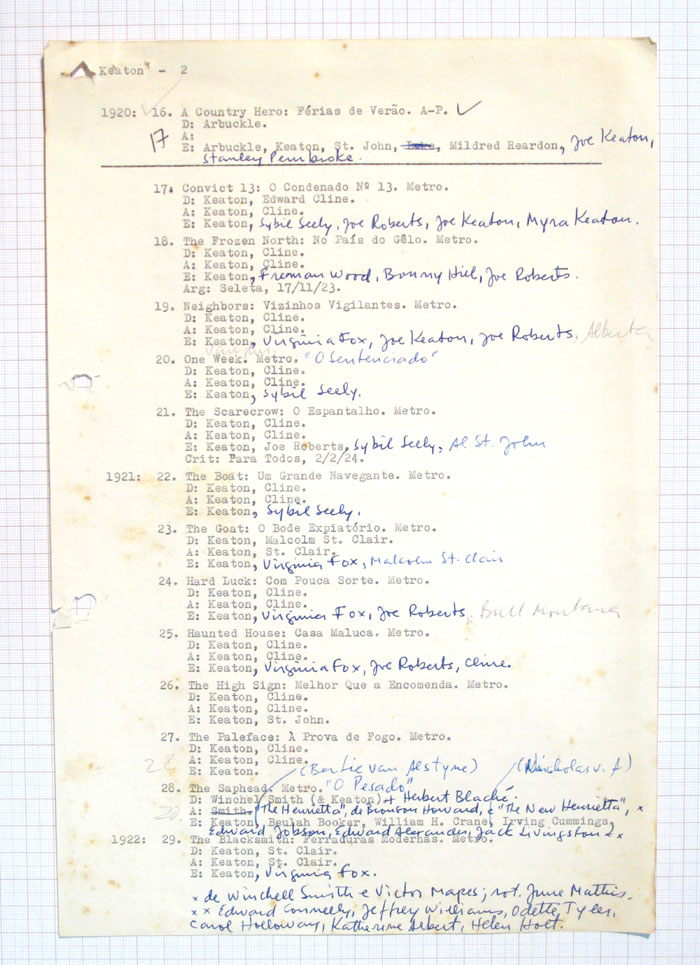 Keaton - 2
1920: 16. A Country Hero: Férias de Verão. A-P.
D: Arbuckle.
17 A:
E: Arbuckle, Keaton, St. John, Luke, Mildred Reardon, Joe Keaton,
Stanley Pembroke.
17. Convict 13: O Condenado Nº 13. Metro.
D: Keaton, Edward Cline.
A: Keaton, Cline.
E: Keaton, Sybil Seely, Joe Roberts, Joe Keaton, Myra Keaton.
18. The Frozen North: No País do Gêlo. Metro.
D: Keaton, Cline.
A: Keaton, Cline.
E: Keaton, Freeman Wood, Bonny Hill, Joe Roberts.
Arg: Seleta, 17/11/23.
19. Neighbors: Vizinhos Vigilantes. Metro.
D: Keaton, Cline.
A: Keaton, Cline.
E: Keaton, Virginia Fox, Joe Keaton, Joe Roberts, Alberta
Vaughn
20. One Week. Metro. "O Sentenciado"
D: Keaton, Cline.
A: Keaton, Cline.
E: Keaton, Sybil Seely.
21. The Scarecrow: O Espantalho. Metro.
D: Keaton, Cline.
A: Keaton, Cline.
E: Keaton, Joe Roberts, Sybil Seely, Al St. John
Crit: Para Todos, 2/2/24.
1921: 22. The Boat: Um Grande Navegante. Metro.
D: Keaton, Cline.
A: Keaton, Cline.
E: Keaton, Sybil Seely.
23. The Goat: O Bode Expiatório. Metro.
D: Keaton, Malcolm St. Clair.
A: Keaton, St. Clair.
E: Keaton, Virginia Fox, Malcolm St. Clair
24. Hard Luck: Com Pouca Sorte. Metro.
D: Keaton, Cline.
A: Keaton, Cline.
E: Keaton, Virginia Fox, Joe Roberts, Bull Montana
25. Haunted House: Casa Maluca. Metro.
D: Keaton, Cline.
A: Keaton, Cline.
E: Keaton, Virginia Fox, Joe Roberts, Cline.
26. The High Sign: Melhor Que a Encomenda. Metro.
D: Keaton, Cline.
A: Keaton, Cline.
E: Keaton, St. John.
27. The Paleface: À Prova de Fogo. Metro.
D: Keaton, Cline.
A: Keaton, Cline.
28 E: Keaton. (Bertie van Alstyne) (Nicholas v. A)
28. The Saphead. Metro. "O Pesado"
D: Winchel Smith (& Keaton) + Herbert Blaché.
A: Smith. "The Henrietta", de Bronson Howard, e "The New Henrietta", x
E: Keaton, Beulah Booker, William H. Crane, Irving Cummings,
Edward Jobson, Edward Alexander, Jack Livingston x x
1922: 29. The Blacksmith: Ferraduras Modernas. Metro.
D: Keaton, St. Clair.
A: Keaton, St. Clair.
E: Keaton, Virginia Fox.
x de Winchell Smith e Victor Mapes; rot. June Mathis.
x x Edward Connelly, Jeffrey Williams, Odette Tyler,
Carol Holloway, Katherine Albert, Helen Holt.